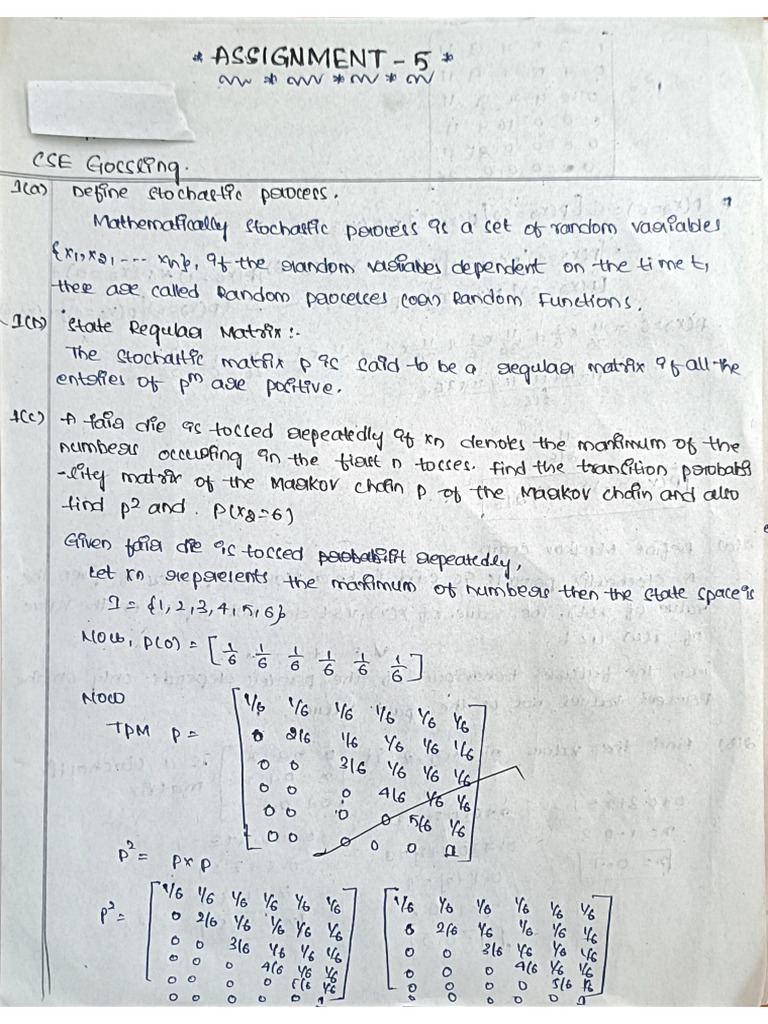 * ASSIGNMENT - 5 *
CSE Gocsling.
1(a) Define stochastic process.
Mathematically stochastic process is a set of random variables
{x1, x2, --- xn}, if the random variables dependent on the time t,
these are called Random processes (or) Random Functions.
1(b) State Regular Matrix :-
The stochastic matrix P is said to be a regular matrix if all the
entries of P^m are positive.
1(c) A fair die is tossed repeatedly if xn denotes the maximum of the
numbers occuring in the first n tosses. find the transition probabi
-lity matrix of the Markov chain P of the Markov chain and also
find P² and P(x2=6)
Given fair die is tossed repeatedly,
Let xn represents the maximum of numbers then the state space is
I = {1, 2, 3, 4, 5, 6}
Now, P(0) = [1/6 1/6 1/6 1/6 1/6 1/6]
Now
TPM P =
[1/6 1/6 1/6 1/6 1/6 1/6
0 2/6 1/6 1/6 1/6 1/6
0 0 3/6 1/6 1/6 1/6
0 0 0 4/6 1/6 1/6
0 0 0 0 5/6 1/6
0 0 0 0 0 1]
P² = P x P
P² =
[1/6 1/6 1/6 1/6 1/6 1/6] [1/6 1/6 1/6 1/6 1/6 1/6]
0 2/6 1/6 1/6 1/6 1/6 0 2/6 1/6 1/6 1/6 1/6
0 0 3/6 1/6 1/6 1/6 0 0 3/6 1/6 1/6 1/6
0 0 0 4/6 1/6 1/6 0 0 0 4/6 1/6 1/6
0 0 0 0 5/6 1/6 0 0 0 0 5/6 1/6
0 0 0 0 0 1 0 0 0 0 0 1